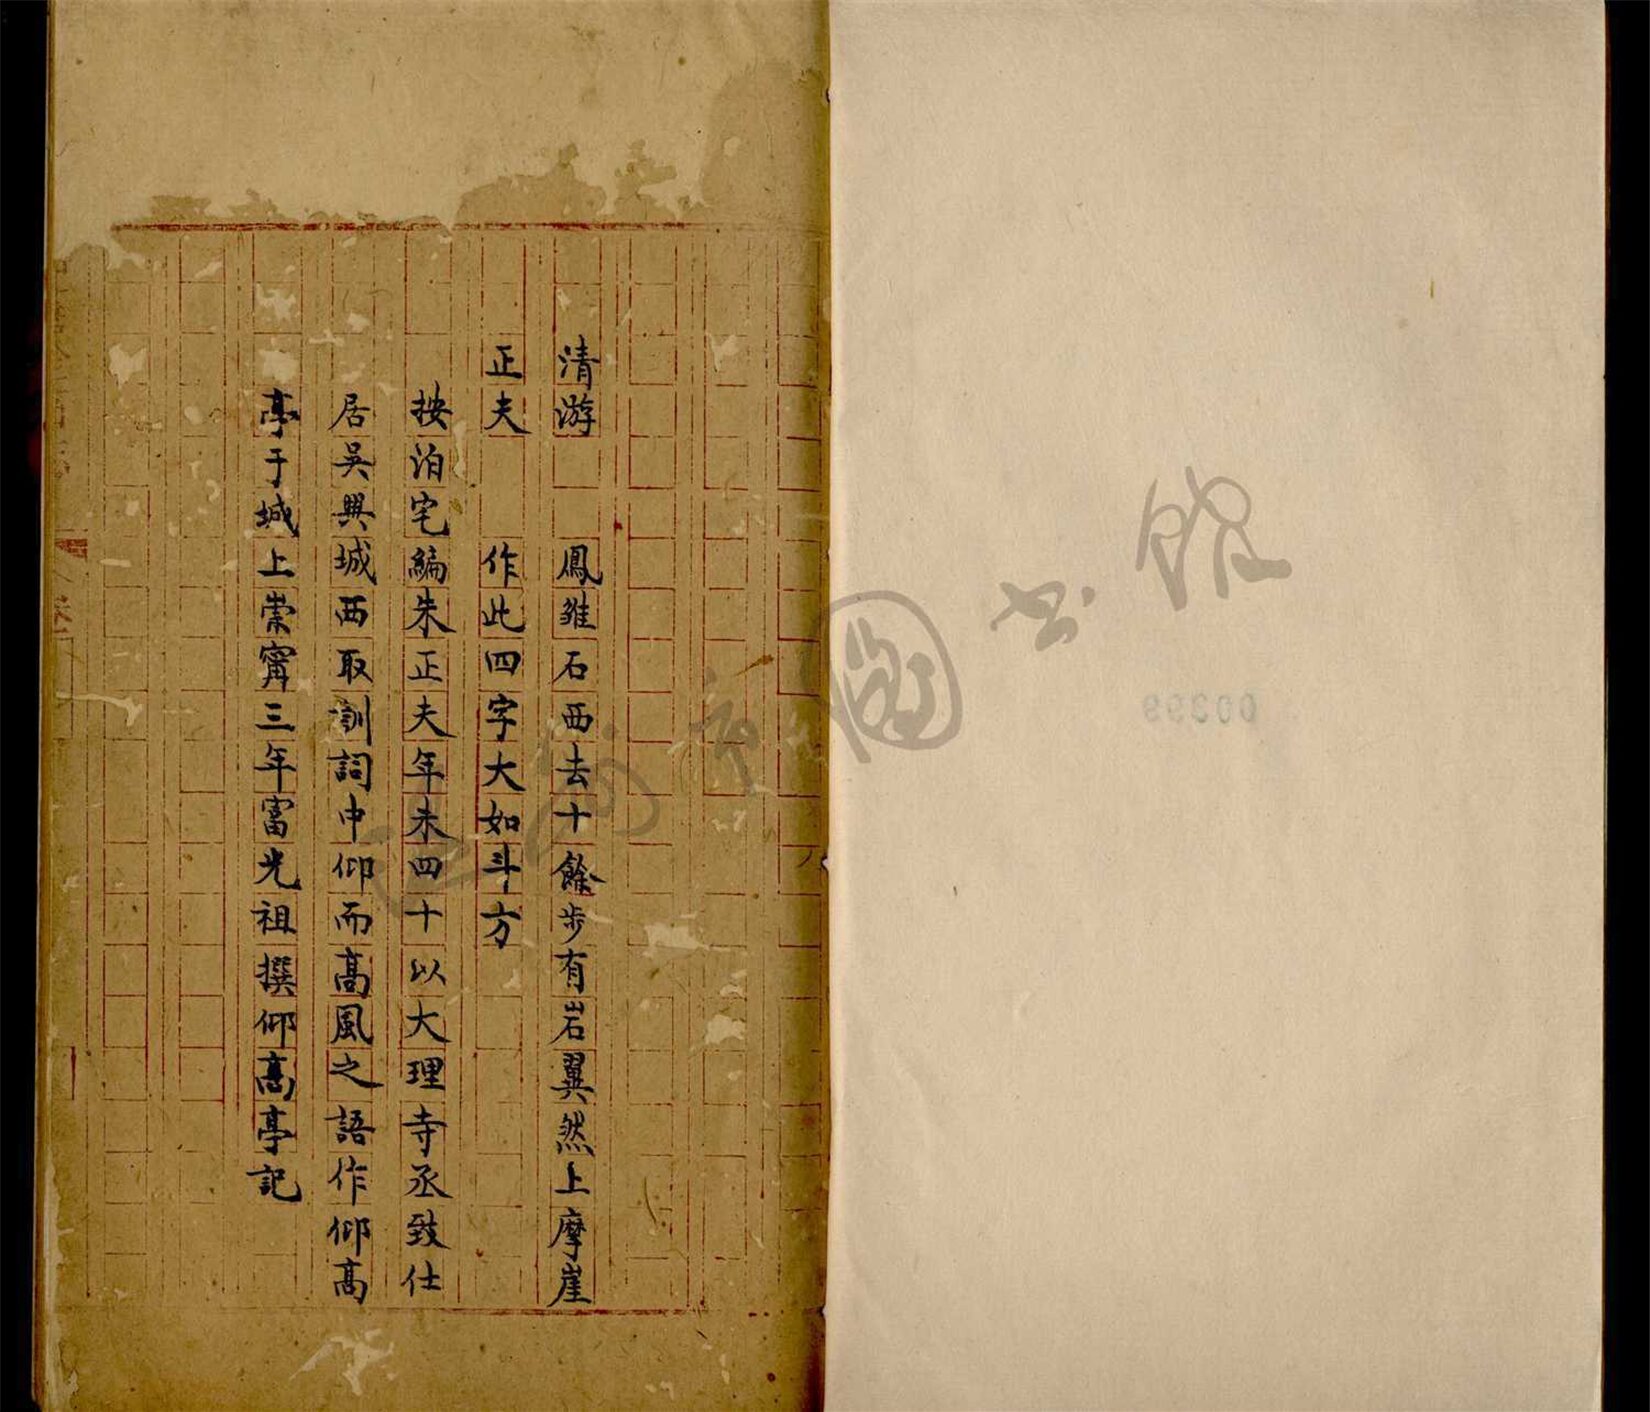 清游　　鳳雏石西去十餘步有岩翼然上摩崖
正夫　　作此四字大如斗方
按泊宅編朱正夫年未四十以大理寺丞致仕
居吳興城西取訓詞中仰而高風之語作仰高
亭于城上崇寗三年富光祖撰仰高亭記
書館
00399